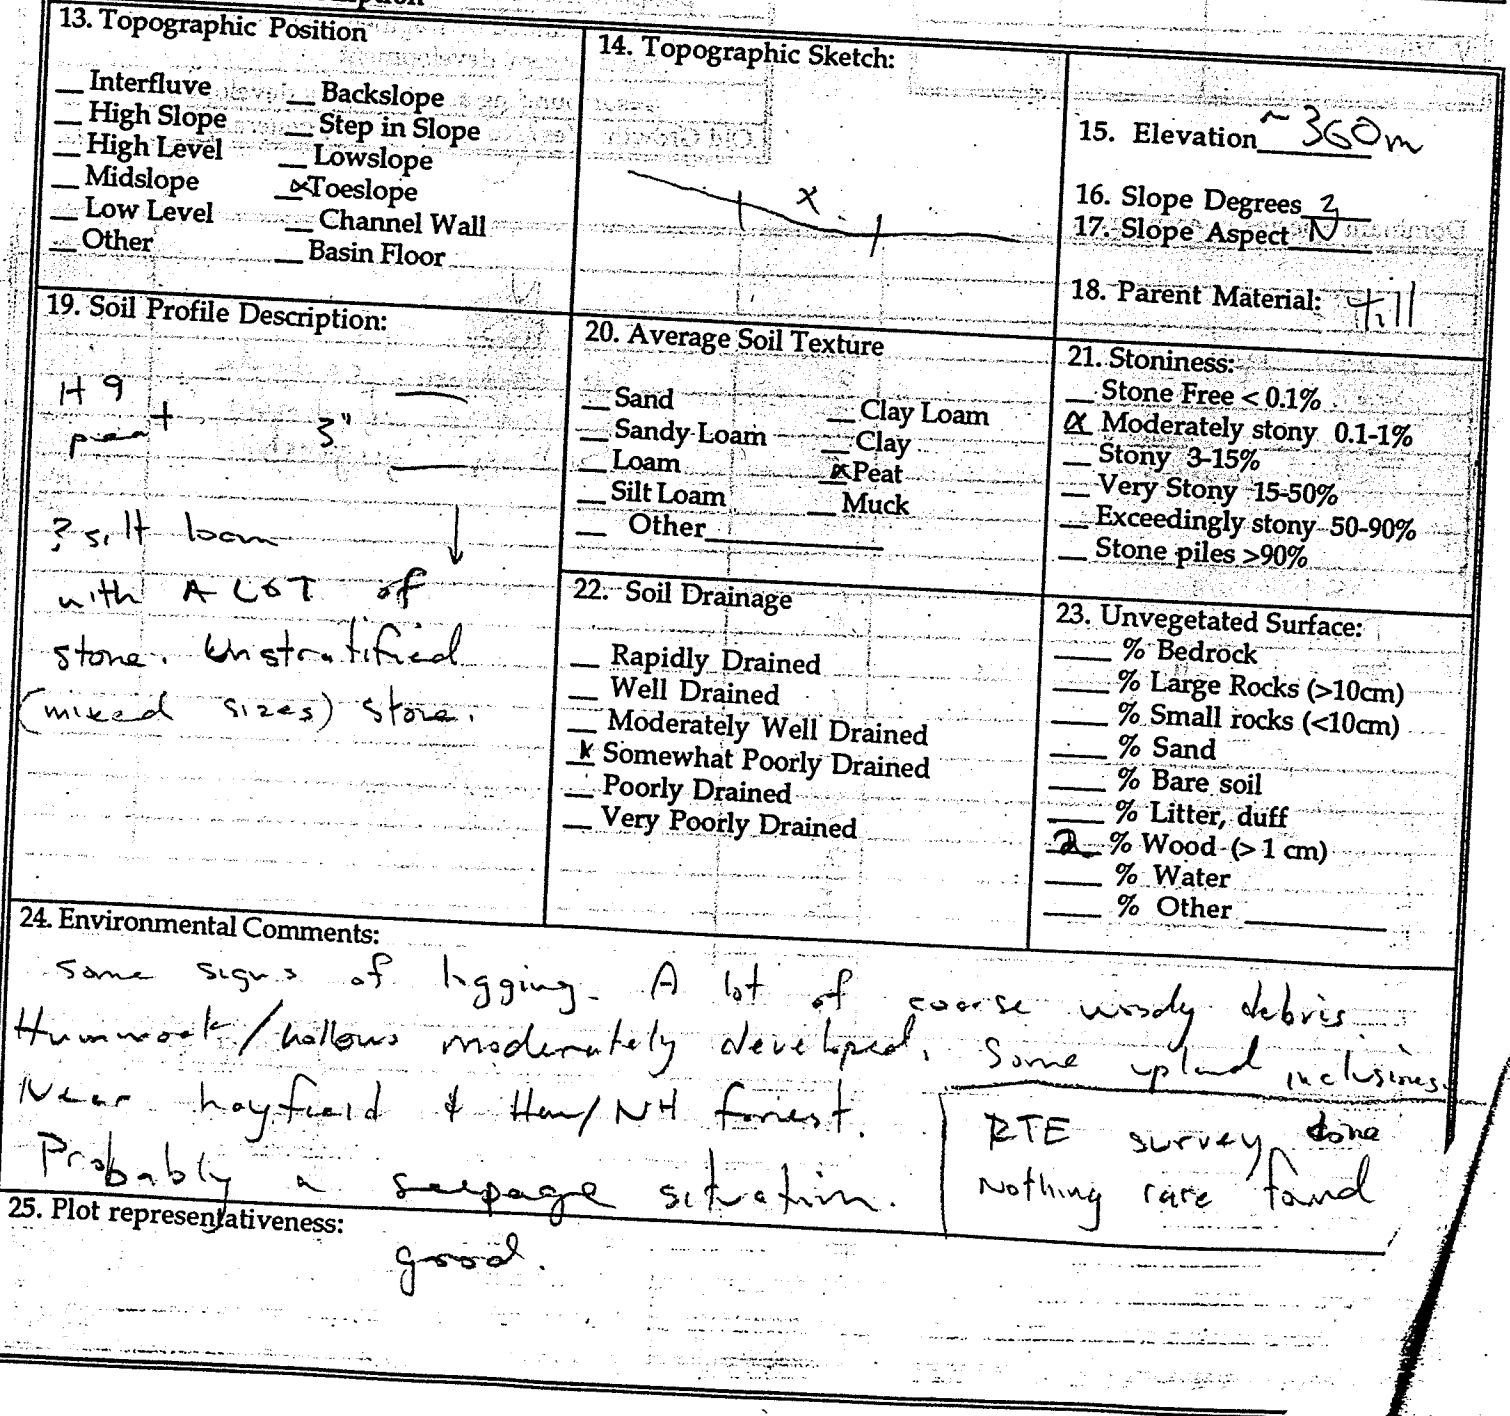 13. Topographic Position
__ Interfluve __ Backslope
__ High Slope __ Step in Slope
__ High Level __ Lowslope
__ Midslope x Toeslope
__ Low Level __ Channel Wall
__ Other __ Basin Floor
14. Topographic Sketch:
x
15. Elevation ~360m
16. Slope Degrees 2
17. Slope Aspect N
18. Parent Material: till
19. Soil Profile Description:
H 9
peat 3"
? silt loam
with A LOT of
stone. Unstratified
(mixed sizes) stone.
20. Average Soil Texture
__ Sand __ Clay Loam
__ Sandy Loam __ Clay
__ Loam x Peat
__ Silt Loam __ Muck
__ Other________
21. Stoniness:
__ Stone Free < 0.1%
x Moderately stony 0.1-1%
__ Stony 3-15%
__ Very Stony 15-50%
__ Exceedingly stony 50-90%
__ Stone piles >90%
22. Soil Drainage
__ Rapidly Drained
__ Well Drained
__ Moderately Well Drained
x Somewhat Poorly Drained
__ Poorly Drained
__ Very Poorly Drained
23. Unvegetated Surface:
____ % Bedrock
____ % Large Rocks (>10cm)
____ % Small rocks (<10cm)
____ % Sand
____ % Bare soil
____ % Litter, duff
2 % Wood (> 1 cm)
____ % Water
____ % Other ________
24. Environmental Comments:
Some signs of logging. A lot of coarse woody debris
Hummock/hollows moderately developed. Some upland inclusions.
Near hayfield & Hem/NH forest.
Probably a seepage situation.
RTE survey done
Nothing rare found
25. Plot representativeness:
good.